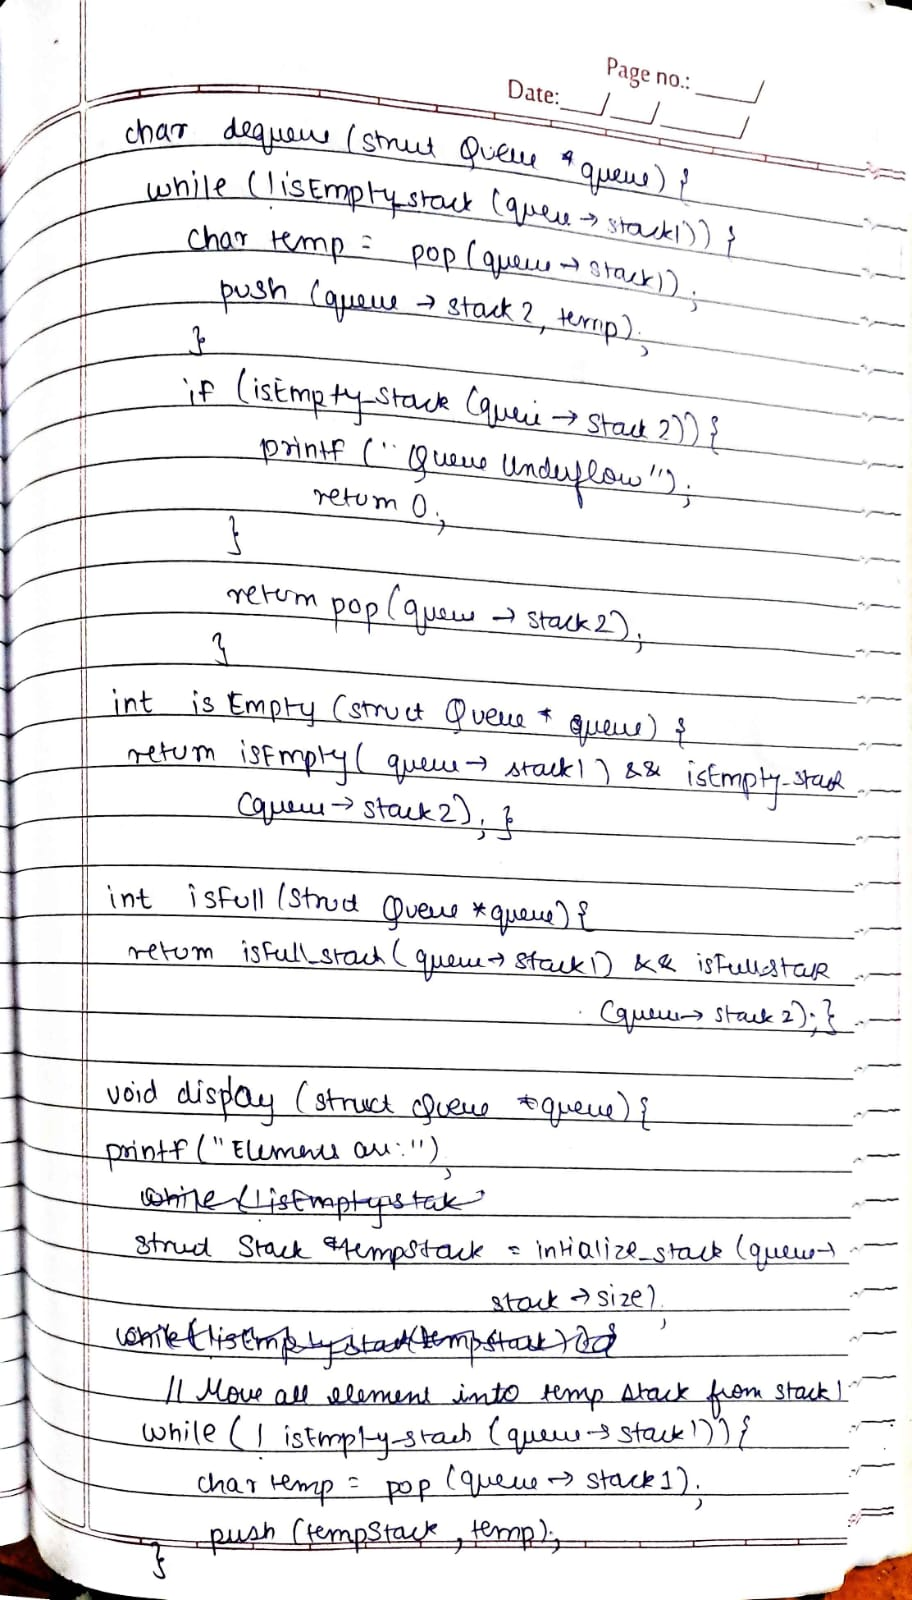 Page no.:
Date:
char dequeue (struct Queue * queue) {
while (!isEmpty_stack (queue → stack1)) {
char temp = pop (queue → stack1);
push (queue → stack 2, temp);
}
if (isEmpty_stack (queue → stack 2)) {
printf ("Queue Underflow");
return 0;
}
return pop (queue → stack2);
}
int is Empty (struct Queue * queue) {
return isEmpty( queue → stack1 ) && isEmpty_stack
(queue → stack2); }
int isfull (struct Queue *queue) {
return isfull_stack ( queue → stack1) && isfull_stack
(queue → stack 2); }
void display (struct Queue *queue) {
printf ("Elements are:");
while (!isEmptystak
struct Stack *tempStack = intialize_stack (queue →
stack → size);
while (!isEmptystack(tempstack)) {
// Move all element into temp stack from stack1
while ( ! isEmpty_stack (queue → stack1)) {
char temp = pop (queue → stack1);
push (tempStack, temp);
}